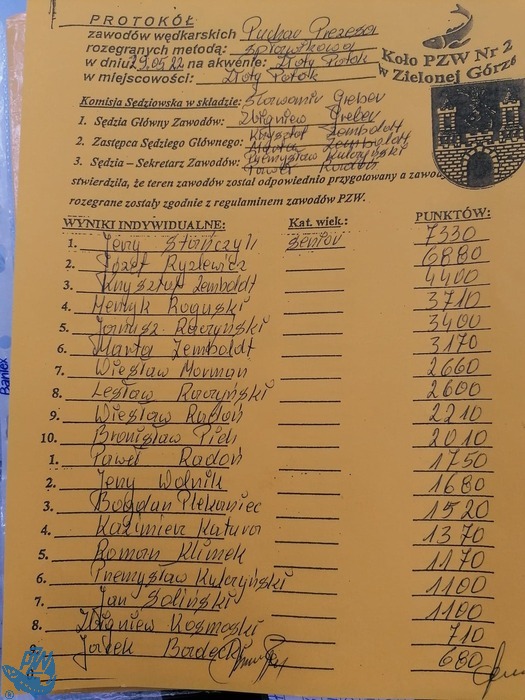 PROTOKÓŁ
zawodów wędkarskich Puchar Prezesa
rozegranych metodą: spławikowa
w dniu 29.05.22 na akwenie: Złoty Potok
w miejscowości: Złoty Potok
Koło PZW Nr 2
w Zielonej Górze
Komisja Sędziowska w składzie: Sławomir Greber
1. Sędzia Główny Zawodów: Zbigniew Greber
2. Zastępca Sędziego Głównego: Krzysztof Zemboldt
Marta Zemboldt
3. Sędzia – Sekretarz Zawodów: Przemysław Kulczyński
Paweł Radoń
stwierdziła, że teren zawodów został odpowiednio przygotowany a zawody
rozegrane zostały zgodnie z regulaminem zawodów PZW.
WYNIKI INDYWIDUALNE: Kat. wiek.: PUNKTÓW:
1. Jerzy Stańczyk senior 7330
2. Józef Ryzlewicz 6880
3. Krzysztof Zemboldt 4400
4. Henryk Roguski 3710
5. Janusz Raczyński 3400
6. Marta Zemboldt 3170
7. Wiesław Morman 2660
8. Lesław Raczyński 2600
9. Wiesław Radoń 2210
10. Bronisław Pich 2010
1. Paweł Radoń 1750
2. Jerzy Wolnik 1680
3. Bogdan Plekaniec 1520
4. Kazimierz Katura 1370
5. Roman Klimek 1170
6. Przemysław Kulczyński 1100
7. Jan Soliński 1100
8. Zbigniew Kosmoski 710
Jacek 680
PZW
Bantex